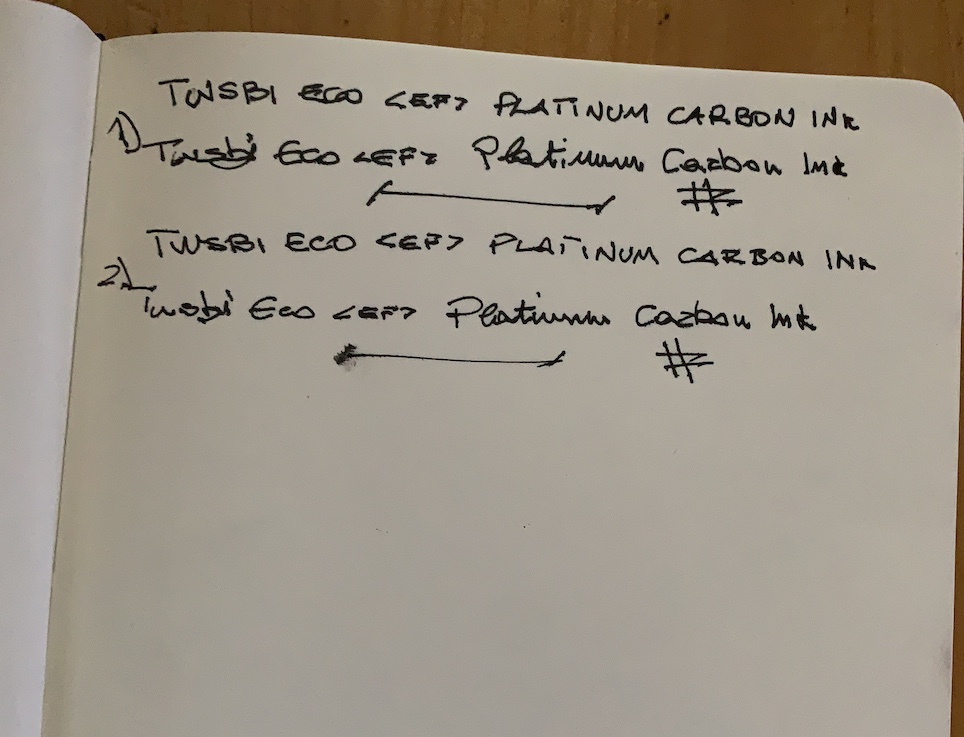 TWSBI ECO <EF> PLATINUM CARBON INK
1) Twsbi Eco <EF> Platinum Carbon Ink
#
TWSBI ECO <EF> PLATINUM CARBON INK
2) Twsbi Eco <EF> Platinum Carbon Ink
#